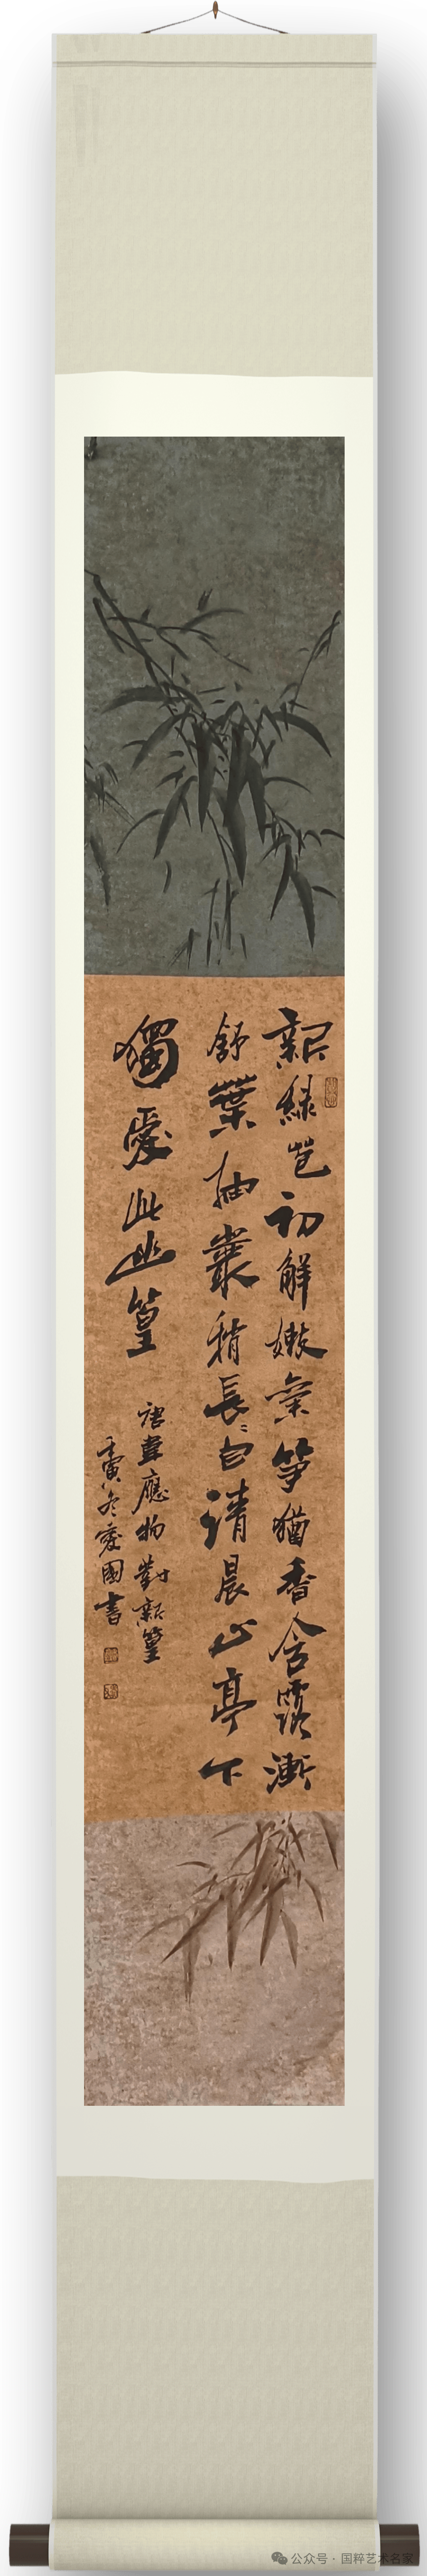 新綠苞初解嫩氣笋猶香含露漸
舒葉抽叢稍長自清晨止亭下
獨愛此幽篁
唐韋應物對新篁
壬寅冬愛國書
公众号 · 国粹艺术名家